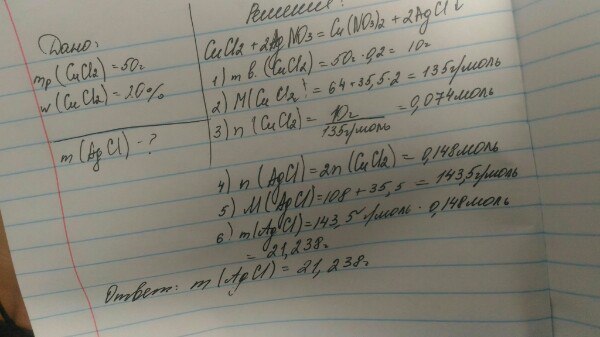 Решение:
Дано:
mр(CuCl2)=50г
w(CuCl2)=20%
m(AgCl)-?
CuCl2+2AgNO3=Cu(NO3)2+2AgCl↓
1) m в. (CuCl2)=50г·0,2=10г
2) M(CuCl2)=64+35,5·2=135г/моль
3) n(CuCl2)=10г/135г/моль=0,074моль
4) n(AgCl)=2n(CuCl2)=0,148моль
5) M(AgCl)=108+35,5=143,5г/моль
6) m(AgCl)=143,5г/моль·0,148моль
=21,238г
Ответ: m(AgCl)=21,238г